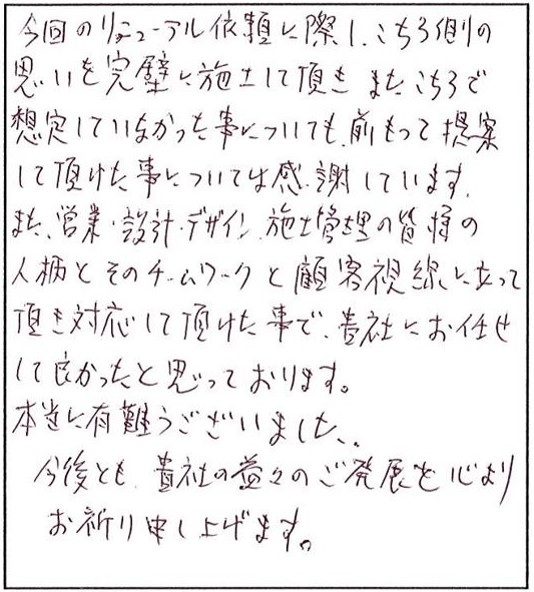 今回のリニューアル依頼に際し、こちら側の
思いを完璧に施工して頂き またこちらで
想定していなかった事についても、前もって提案
して頂けた事については感謝しています。
また、営業・設計・デザイン、施工管理の皆様の
人柄とそのチームワークと顧客視線に立って
頂き対応して頂けた事で、貴社にお任せ
して良かったと思っております。
本当に有難うございました。
今後とも、貴社の益々のご発展を心より
お祈り申し上げます。